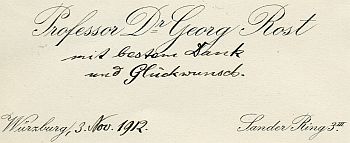 Professor Dr Georg Rost
mit bestem Dank
und Glückwunsch.
Würzburg, 3. Nov. 1912.
Sander Ring 3III